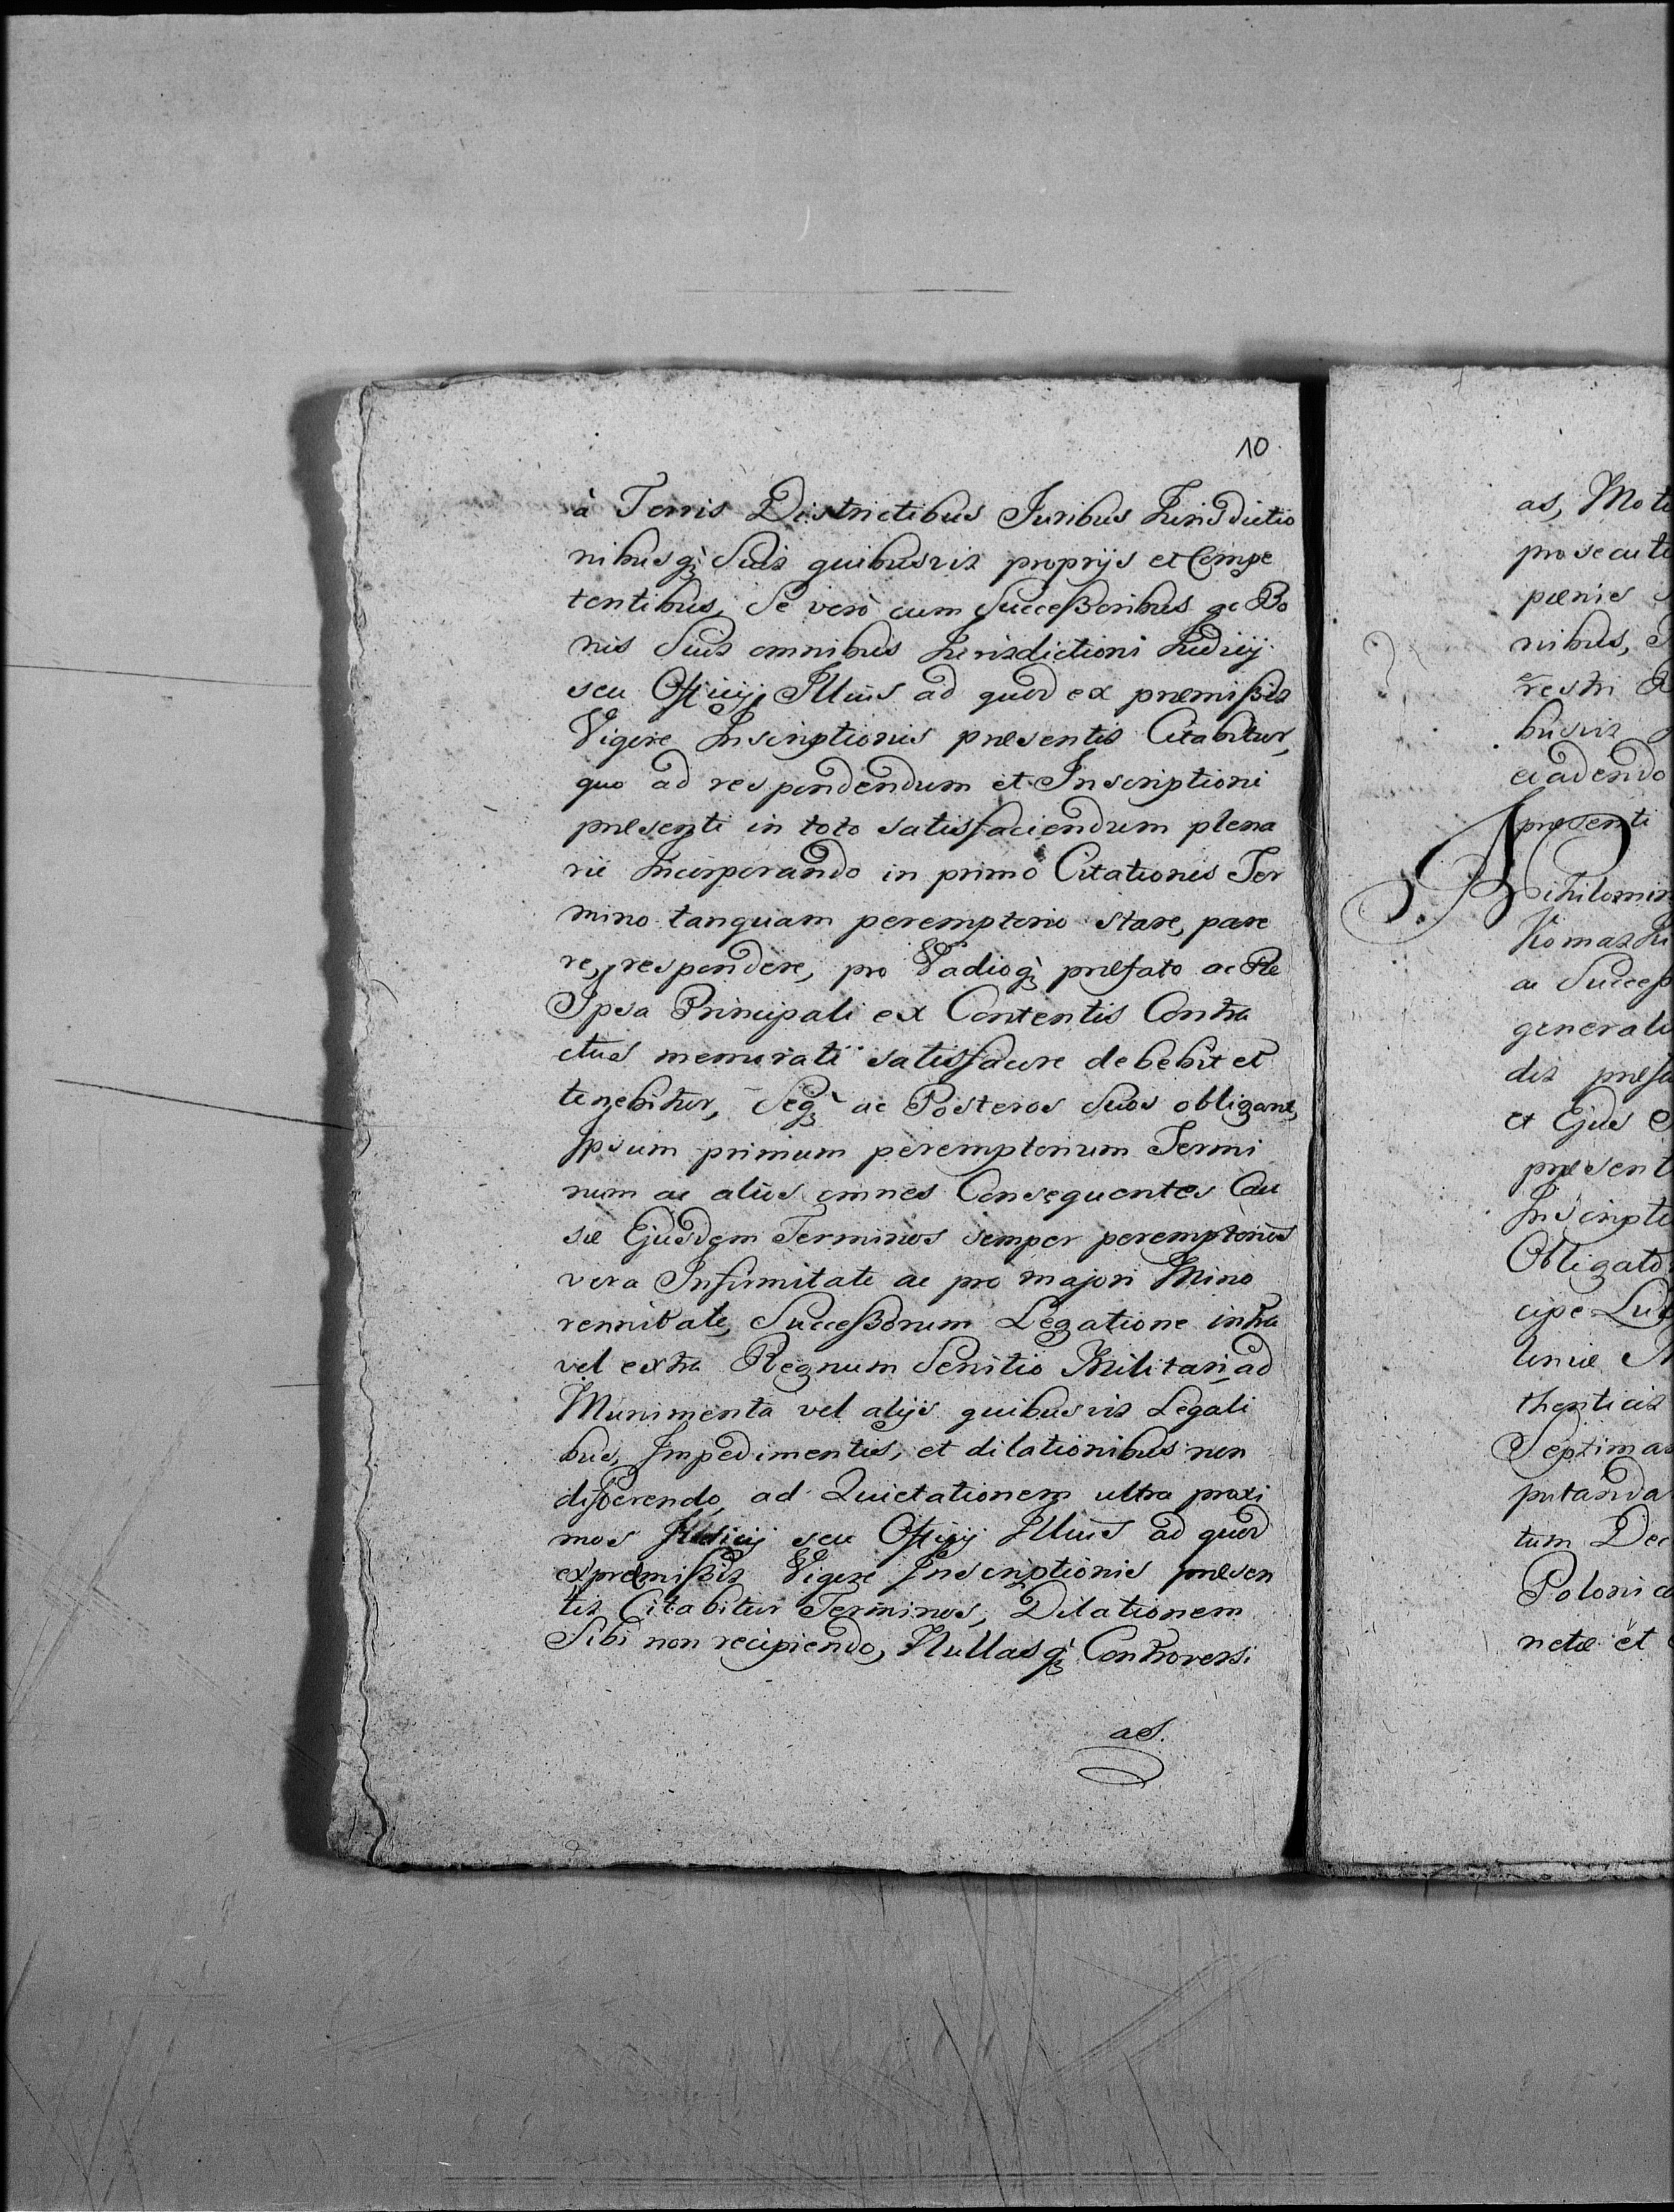 10
à Terris Districtibus Juribus Jurisdictio
nibusq; Suis quibusvis proprijs et Compe
tentibus, Se verò cum Succeßoribus ac Bo
nis Suis omnibus Jurisdictioni Judicij
seu Officij Illius ad quod ex præmißis
Vigore Inscriptionis præsentis Citabitur,
quo ad respondendum et Inscriptioni
præsenti in toto satisfaciendum plena
rie Incorporando in primo Citationis Ter
mino tanquam peremptorio stare, pare
re, respondere, pro Vadioq; præfato ac Re
Ipsa Principali ex Contentis Contra
ctus memorati satisfacere debebit et
tenebitur, Seq; ac Posteros Suos obligant,
Ipsum primum peremptorium Termi
num ac alios omnes Consequentes Cau
sæ Ejusdem Terminos semper peremptorios
vera Infirmitate ac pro majori Mino
rennitate, Succeßorum Legatione intra
vel extra Regnum Servitio Militari, ad
Munimenta vel alijs quibusvis Legali
bus, Impedimentis, et dilationibus non
differendo, ad Quietationem ultra proxi
mos Judicij seu Officij Illius ad quod
ex præmißis Vigore Inscriptionis præsen
tis Citabitur Terminos, Dilationem
Sibi non recipiendo, Nullasq; Controversi
as.
as, Mot
prosecut
pœnis
nibus,
restri
busvis
evadendo
præsenti
Nihilomin
Komarki
ac Succeß
general
dis præfa
et Ejus
præsent
Inscripti
Obligato
cipe Lub
liniæ
thenticis
Septima
putanda
tum Dec
Polonica
netæ et